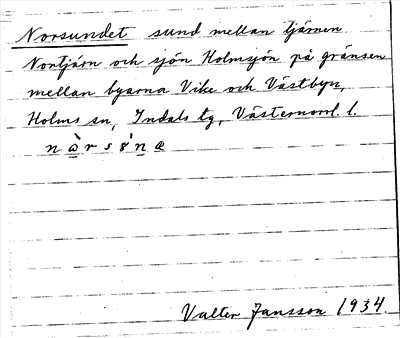 Norsundet sund mellan tjärnen
Nortjärn och sjön Holmsjön på gränsen
mellan byarna Vike och Västbyn,
Holms sn, Indals tg, Västernorrl. l.
Valter Jansson 1934.